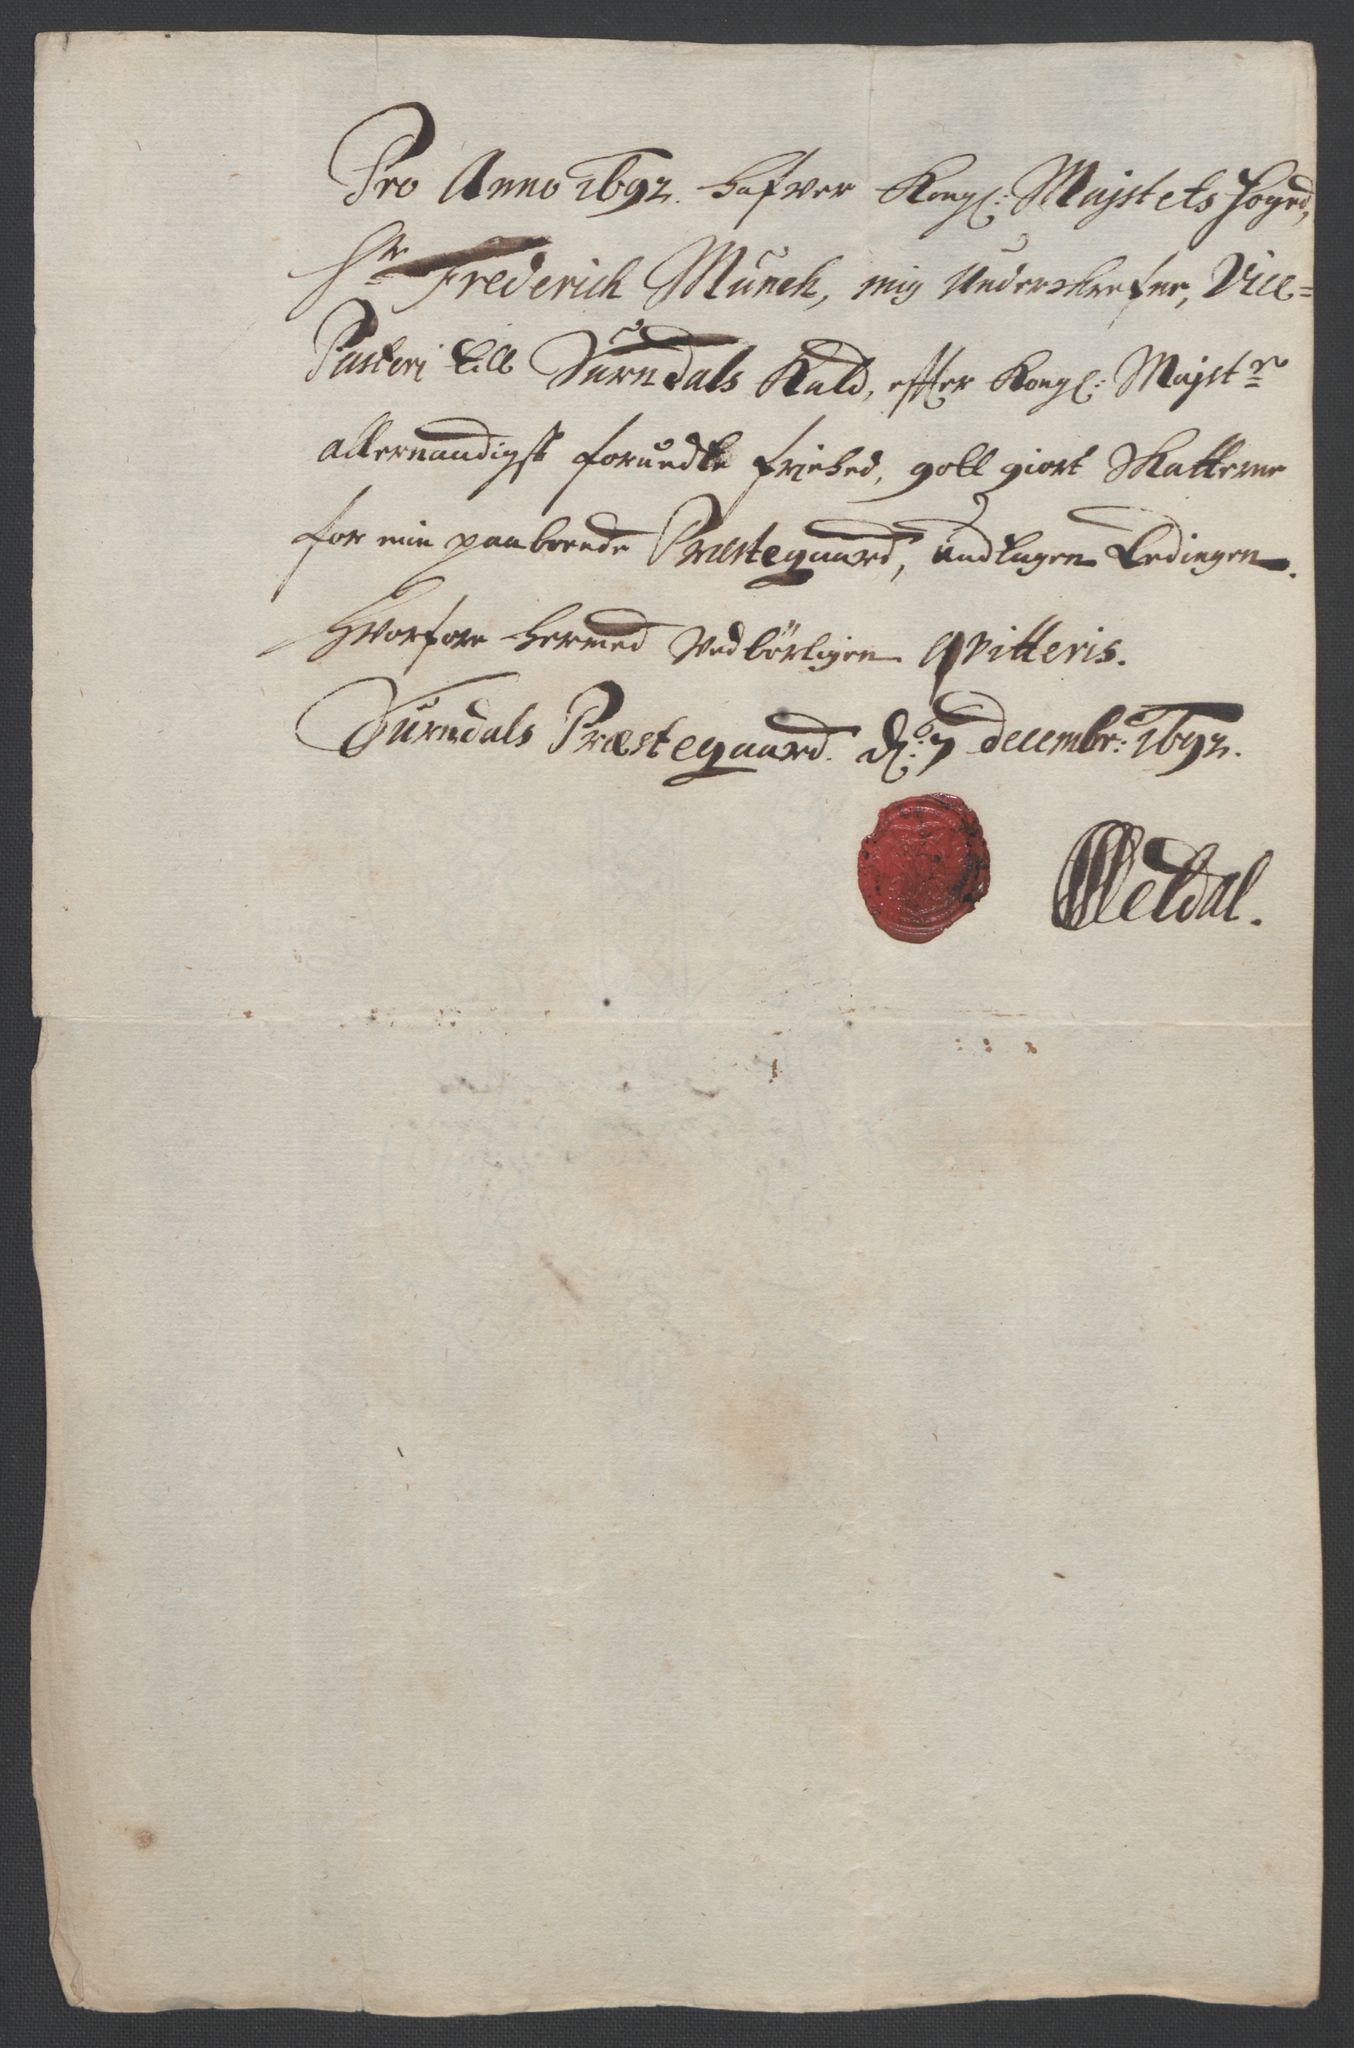 Pro Anno 1692. hafver Kongl: Majstets Foged,
Hr Frederich Munch, mig Underskrefne, Vice-
Pastori till Surndals Kald, effter Kongl: Majst:s
allernaadigst forundte friehed, gott giort Skatterne
for min paaboende Præstegaard, undtagen Ledingen.
Hvorfore hermed Vedbörligen qvitteris.
Surndals Præstegaard. d: 7 decembr: 1692.
Meldal.